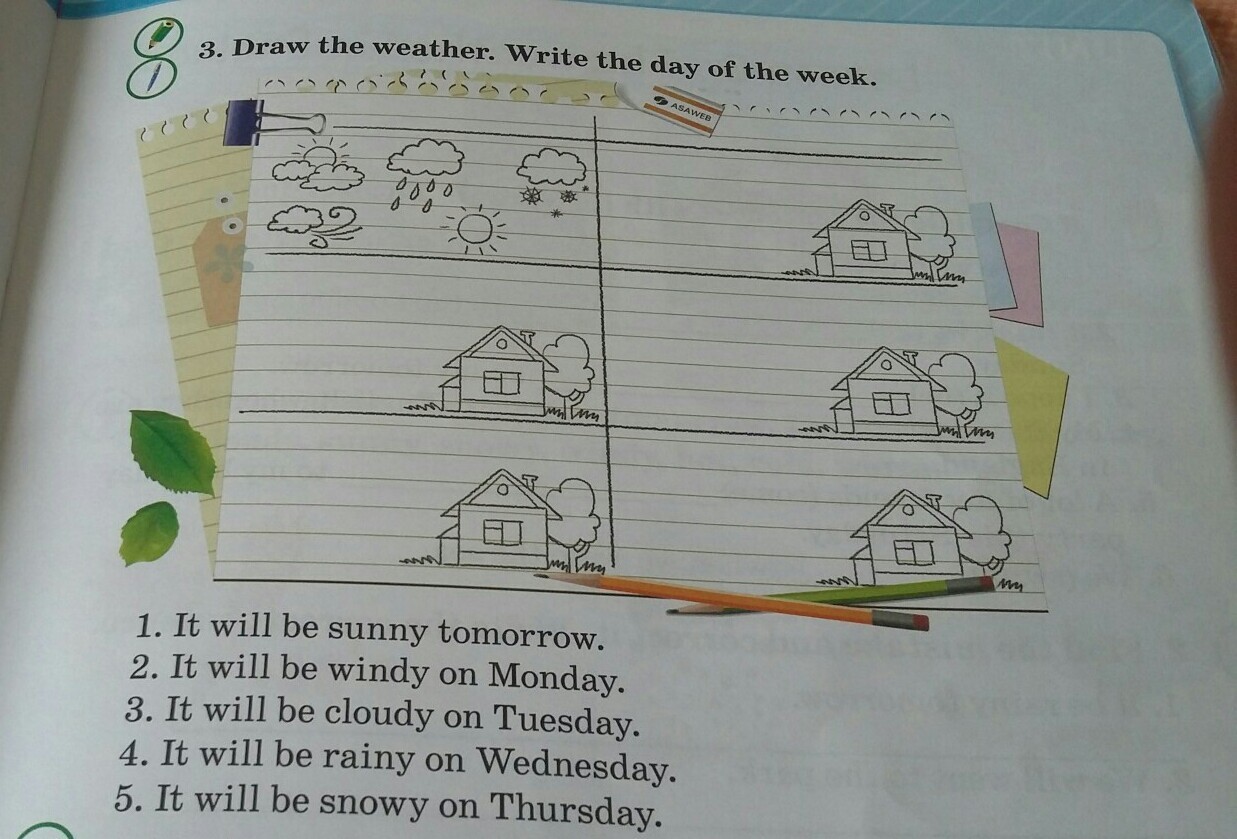 3. Draw the weather. Write the day of the week.
ASAWEB
1. It will be sunny tomorrow.
2. It will be windy on Monday.
3. It will be cloudy on Tuesday.
4. It will be rainy on Wednesday.
5. It will be snowy on Thursday.